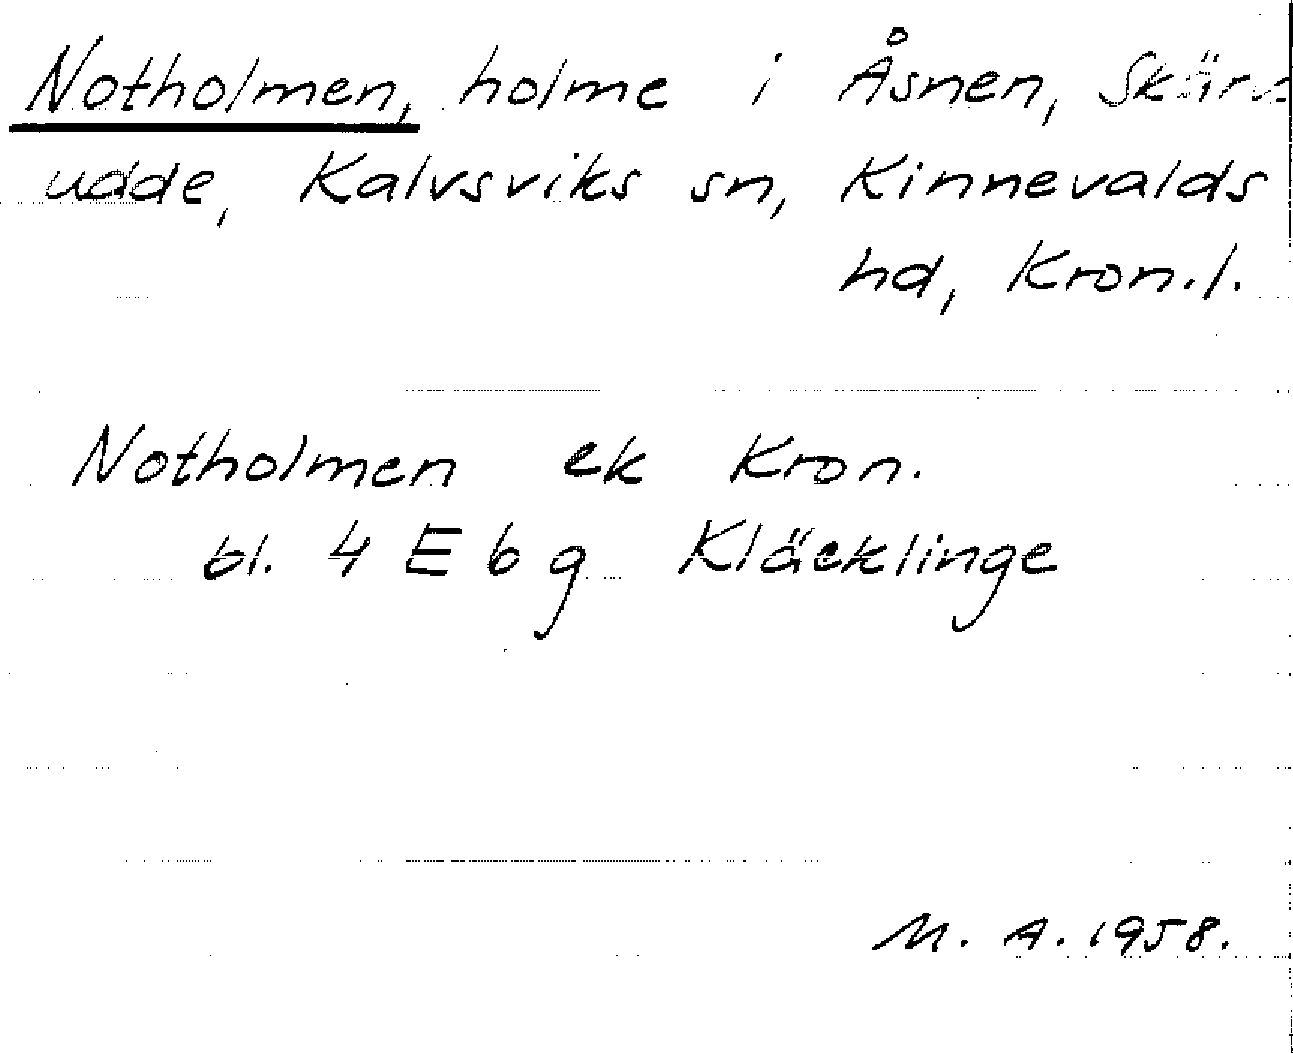 Notholmen, holme i Åsnen, Skärs
udde, Kalvsviks sn, Kinnevalds
hd, Kron.l.
Notholmen ek Kron.
bl. 4 E 6 g Kläcklinge
M. A. 1958.